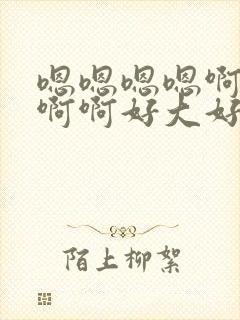 嗯嗯嗯嗯啊
啊啊好大好
陌上柳絮